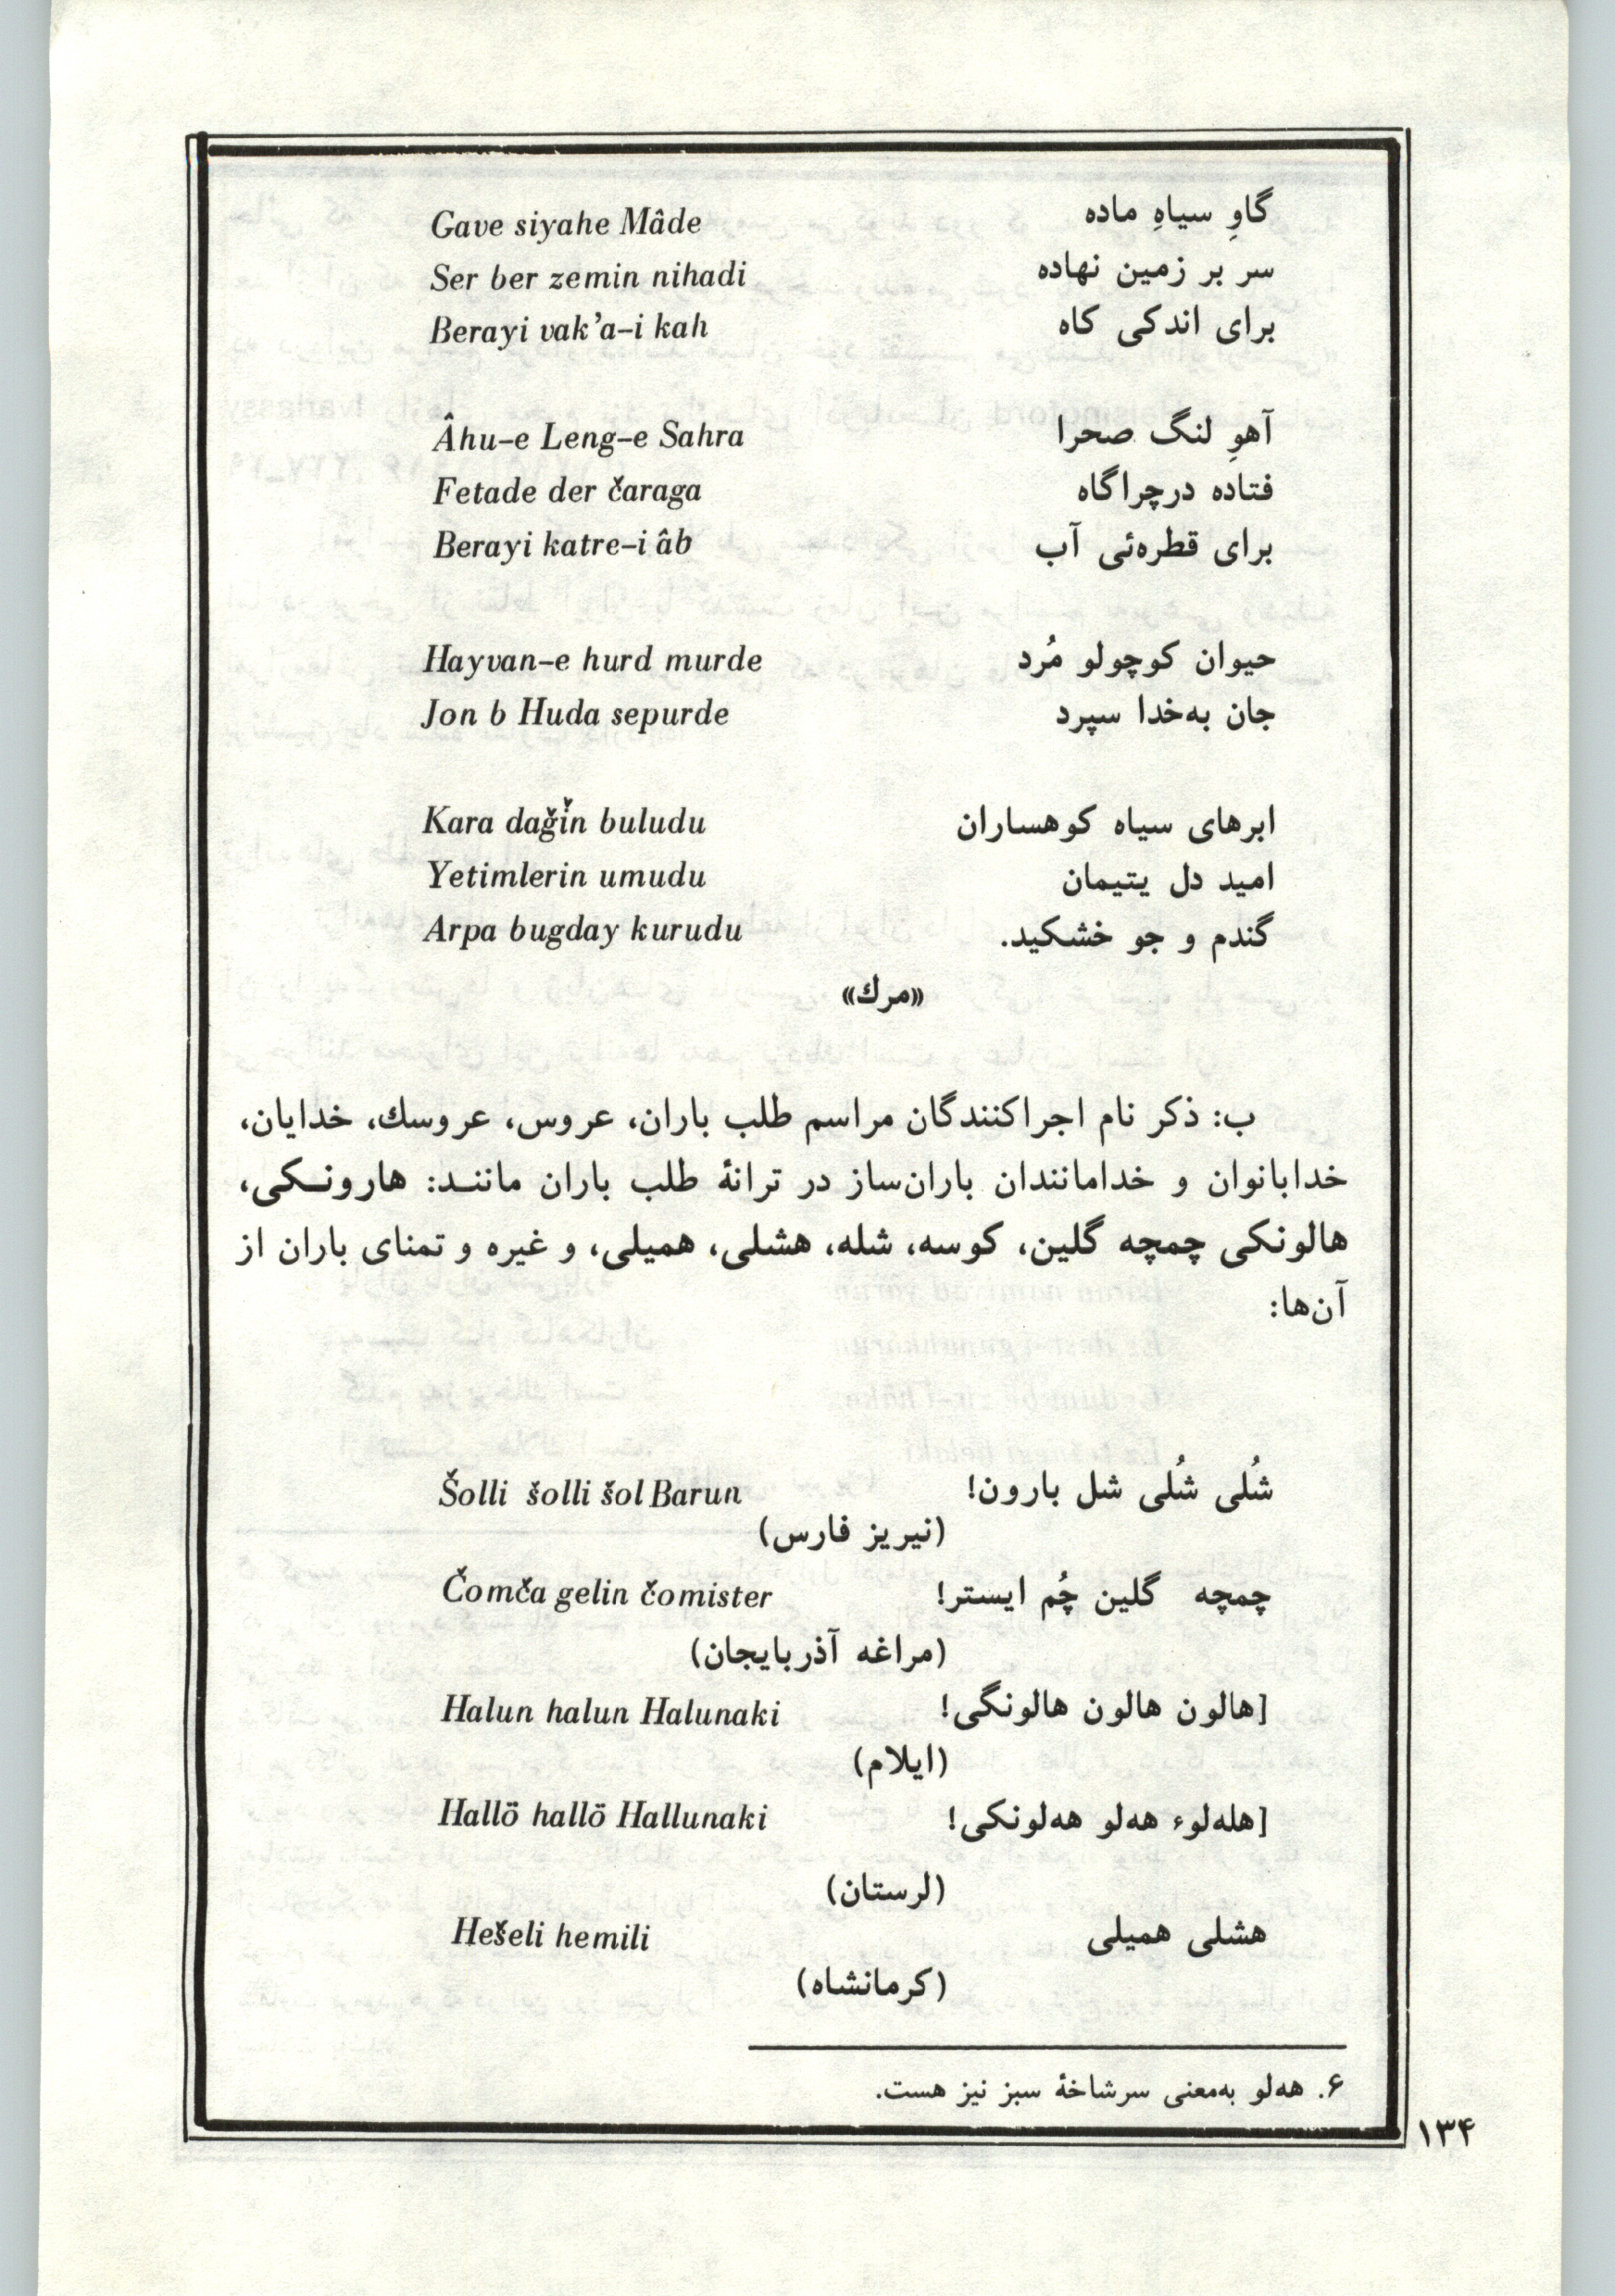 گاوِ سیاهِ ماده Gave siyahe Mâde
سر بر زمین نهاده Ser ber zemin nihadi
برای اندکی کاه Berayi vak’a–i kah
آهوِ لنگ صحرا Âhu–e Leng–e Sahra
فتاده درچراگاه Fetade der čaraga
برای قطره‌ئی آب Berayi katre–i âb
حیوان کوچولو مُرد Hayvan–e hurd murde
جان به‌خدا سپرد Jon b Huda sepurde
ابرهای سیاه کوهساران Kara dağǐn buludu
امید دل یتیمان Yetimlerin umudu
گندم و جو خشکید. Arpa bugday kurudu
«مرك»
ب: ذکر نام اجراکنندگان مراسم طلب باران، عروس، عروسك، خدایان،
خدابانوان و خدامانندان باران‌ساز در ترانهٔ طلب باران ماننـد: هارونـکی،
هالونکی چمچه گلین، کوسه، شله، هشلی، همیلی، و غیره و تمنای باران از
آن‌ها:
شُلی شُلی شل بارون! Šolli šolli šol Barun
(نیریز فارس)
چمچه گلین چُم ایستر! Čomča gelin čomister
(مراغه آذربایجان)
[هالون هالون هالونگی! Halun halun Halunaki
(ایلام)
[هله‌لوء هه‌لو هه‌لونکی! Hallö hallö Hallunaki
(لرستان)
هشلی همیلی Hešeli hemili
(کرمانشاه)
۶. هه‌لو به‌معنی سرشاخهٔ سبز نیز هست.
۱۳۴